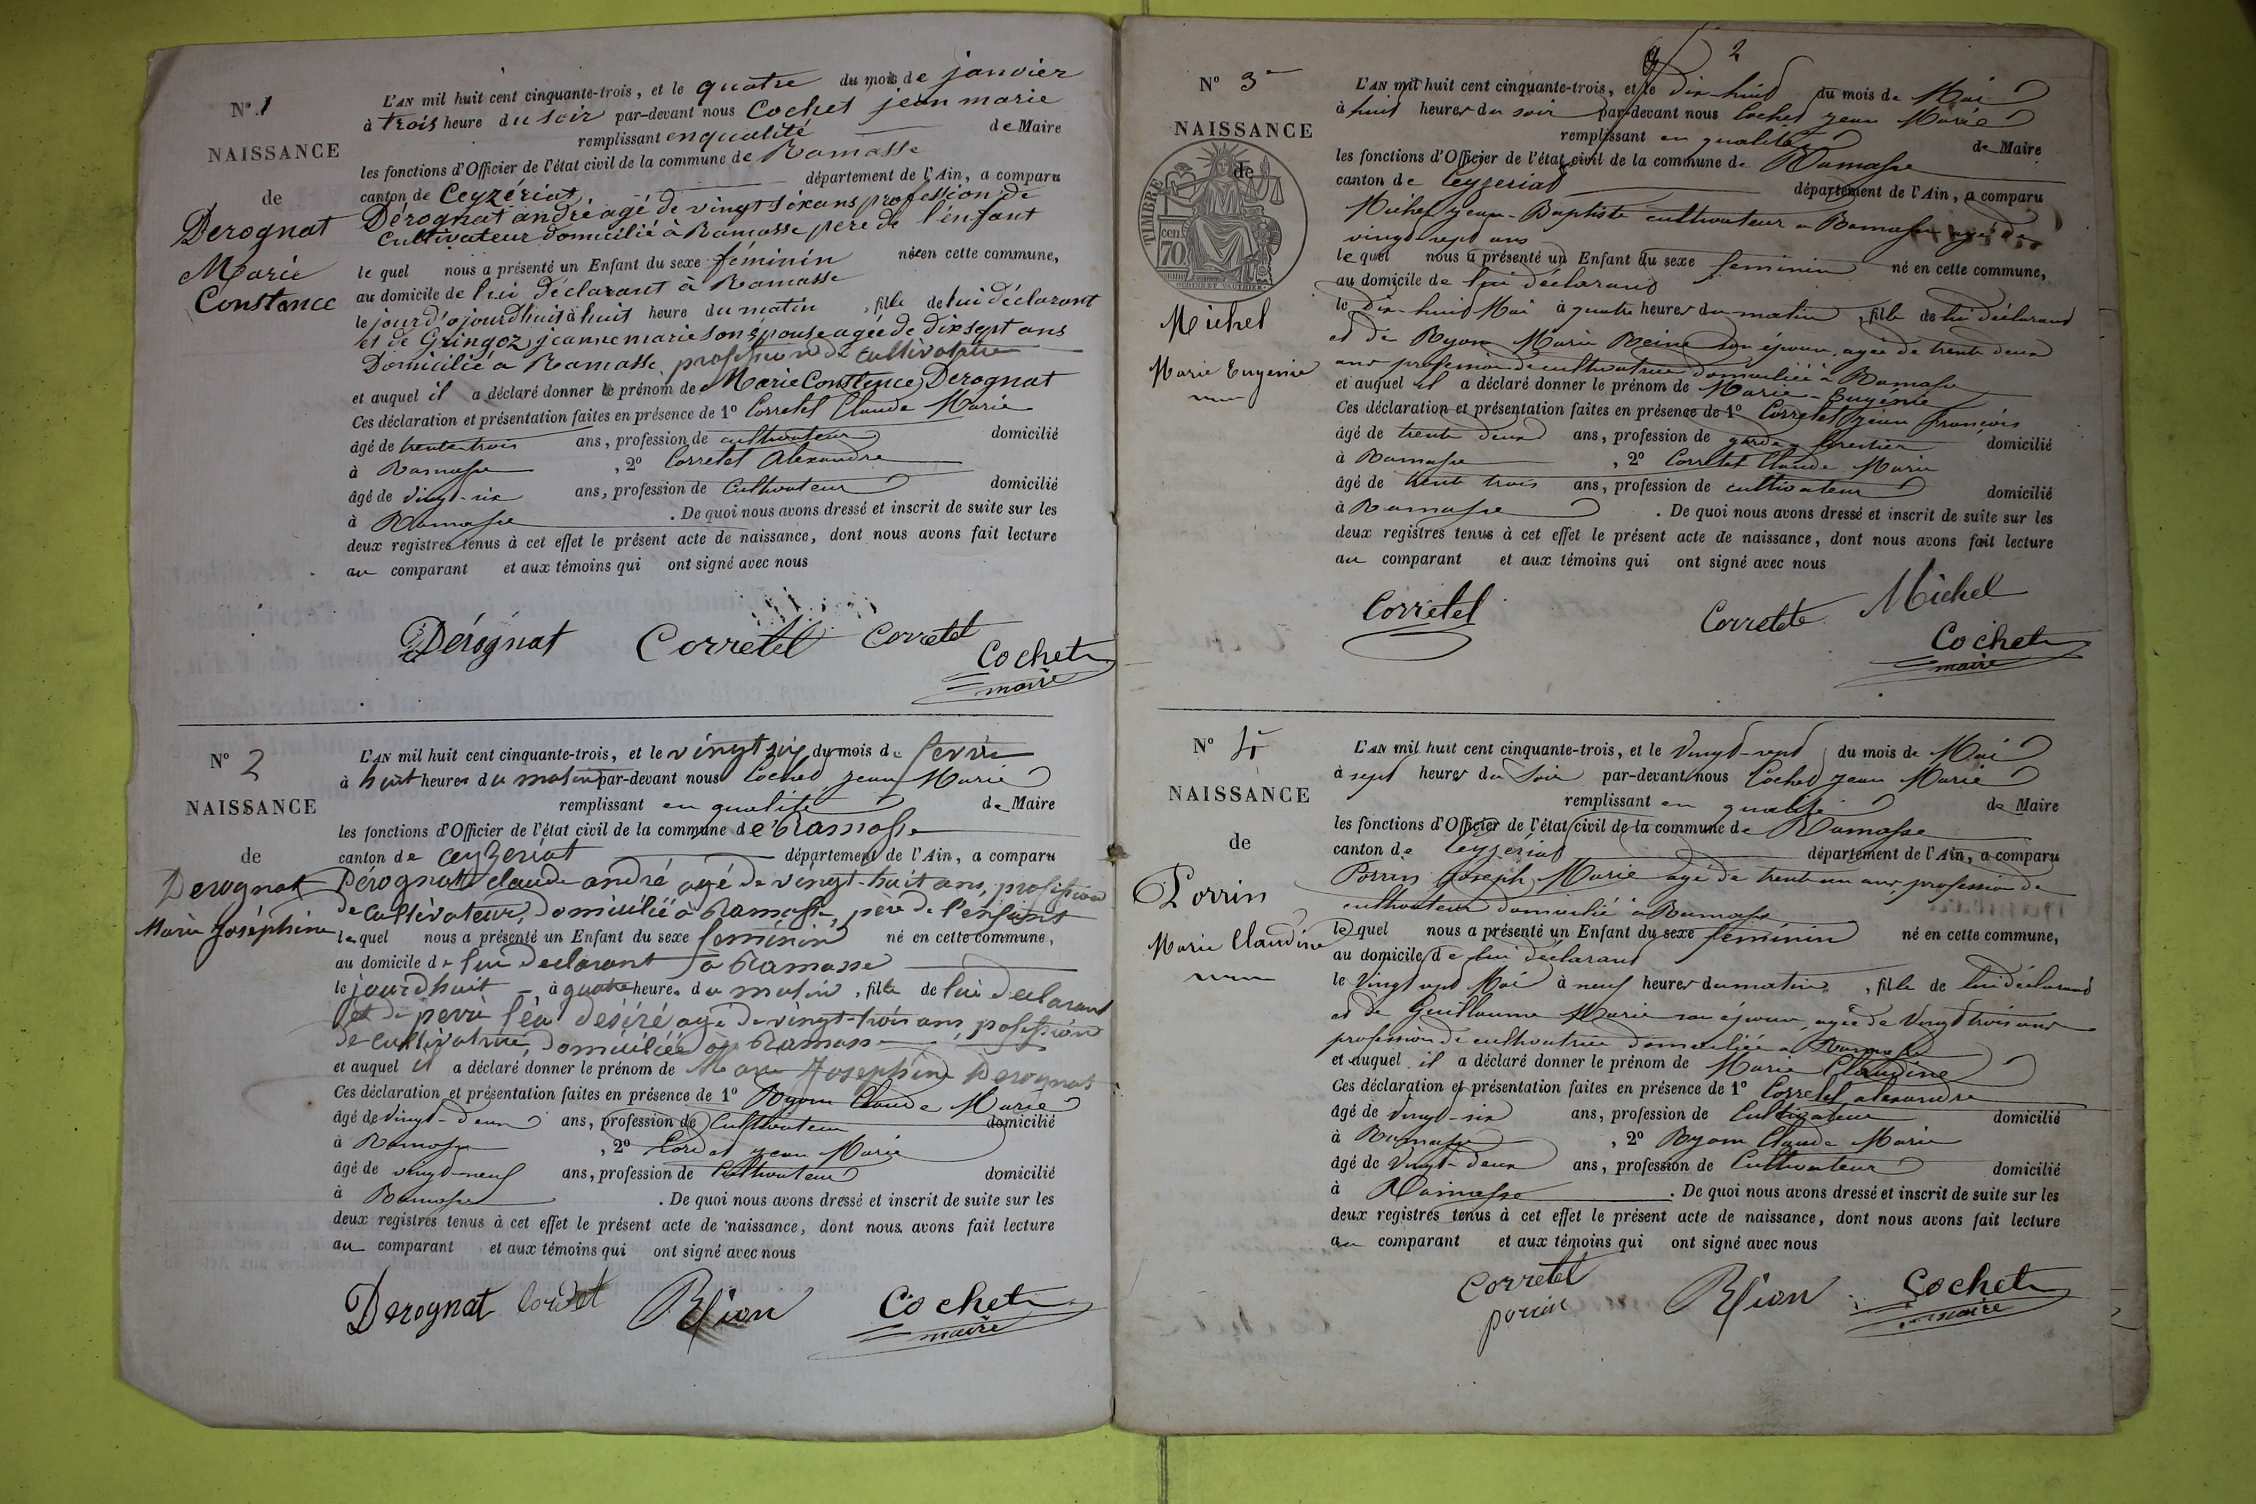 N° 1
NAISSANCE
de
Derognat
Marie
Constence
L'AN mil huit cent cinquante-trois, et le quatre du mois de janvier
à trois heure du soir par-devant nous Cochet jean marie
remplissant en qualité de Maire
les fonctions d'Officier de l'état civil de la commune de Ramasse
canton de Ceyzériat département de l'Ain, a comparu
Dérognat andré agé de vingt six ans profession de
cultivateur domicilié à Ramasse père de l'enfant
le quel nous a présenté un Enfant du sexe féminin née en cette commune,
au domicile de lui déclarant à Ramasse
le jour d'ojourdhuit à huit heure du matin, fille de lui déclarant
et de Gringoz jeanne marie son épouse agée de dix sept ans
Domicilié à Ramasse profession de cultivatrice
et auquel il a déclaré donner le prénom de Marie Constence Derognat
Ces déclaration et présentation faites en présence de 1° Corretel Claude Marie
âgé de trente trois ans, profession de cultivateur domicilié
à Ramasse, 2° Corretel Alexandre
âgé de vingt-six ans, profession de Cultivateur domicilié
à Ramasse. De quoi nous avons dressé et inscrit de suite sur les
deux registres tenus à cet effet le présent acte de naissance, dont nous avons fait lecture
au comparant et aux témoins qui ont signé avec nous
Dérognat Corretel Corretel
Cochet
maire
N° 2
NAISSANCE
de
Derognat
Marie Joséphine
L'AN mil huit cent cinquante-trois, et le vingt six du mois de
à huit heures du matin par-devant nous Cochet jean Marie
remplissant en qualité de Maire
les fonctions d'Officier de l'état civil de la commune de Ramasse
canton de Ceyzeriat département de l'Ain, a comparu
Dérognat claude andré agé de vingt-huit ans, profession
de cultivateur, domicilié à Ramasse, père de l'enfant
le quel nous a présenté un Enfant du sexe féminin né en cette commune,
au domicile de lui declarant à Ramasse
le jourdhuit à quatre heures du matin, fille de lui declarant
et de désiré agé de vingt-trois ans, profession
de cultivatrice, domiciliée à Ramasse
et auquel il a déclaré donner le prénom de Marie Joséphine Derognat
Ces déclaration et présentation faites en présence de 1° Ryon Claude Marie
âgé de vingt-deux ans, profession de Cultivateur domicilié
à Ramasse, 2° Cordet jean Marie
âgé de vingt-neuf ans, profession de Cultivateur domicilié
à Ramasse. De quoi nous avons dressé et inscrit de suite sur les
deux registres tenus à cet effet le présent acte de naissance, dont nous avons fait lecture
au comparant et aux témoins qui ont signé avec nous
Derognat Cordet Rion Cochet
maire
2
N° 3
NAISSANCE
de
TIMBRE
70
Michel
Marie Eugenie
L'AN mil huit cent cinquante-trois, et le dix-huit du mois de Mai
à huit heures du soir par-devant nous Cochet jean Marie
remplissant en qualité de Maire
les fonctions d'Officier de l'état civil de la commune de Ramasse
canton de Ceyzeriat département de l'Ain, a comparu
Michel jean-Baptiste cultivateur à Ramasse agé de
vingt-sept ans
le quel nous a présenté un Enfant du sexe féminin né en cette commune,
au domicile de lui déclarant
le Dix-huit Mai à quatre heures du matin, fille de lui déclarant
et de Ryon Marie Reine son épouse, agée de trente deux
ans profession de cultivatrice domiciliée à Ramasse
et auquel il a déclaré donner le prénom de Marie-Eugénie
Ces déclaration et présentation faites en présence de 1° Corretel jean françois
âgé de trente deux ans, profession de garde forestier domicilié
à Ramasse, 2° Corretel Claude Marie
âgé de trente trois ans, profession de cultivateur domicilié
à Ramasse. De quoi nous avons dressé et inscrit de suite sur les
deux registres tenus à cet effet le présent acte de naissance, dont nous avons fait lecture
au comparant et aux témoins qui ont signé avec nous
Corretel Corretet Michel
Cochet
maire
N° 4
NAISSANCE
de
Porrin
Marie Claudine
L'AN mil huit cent cinquante-trois, et le vingt-sept du mois de Mai
à sept heures du soir par-devant nous Cochet jean Marie
remplissant en qualité de Maire
les fonctions d'Officier de l'état civil de la commune de Ramasse
canton de Ceyzériat département de l'Ain, a comparu
Porrin Joseph Marie agé de trente un ans, profession de
cultivateur domicilié à Ramasse
le quel nous a présenté un Enfant du sexe féminin né en cette commune,
au domicile de lui déclarant
le vingt sept Mai à neuf heures du matin, fille de lui déclarant
et de Guillaume Marie son épouse, agée de vingt trois ans
profession de cultivatrice domiciliée à Ramasse
et auquel il a déclaré donner le prénom de Marie Claudine
Ces déclaration et présentation faites en présence de 1° Corretel alexandre
âgé de vingt-six ans, profession de Cultivateur domicilié
à Ramasse, 2° Ryon Claude Marie
âgé de vingt-deux ans, profession de Cultivateur domicilié
à Ramasse. De quoi nous avons dressé et inscrit de suite sur les
deux registres tenus à cet effet le présent acte de naissance, dont nous avons fait lecture
au comparant et aux témoins qui ont signé avec nous
Corretel
porrin Rion Cochet
maire